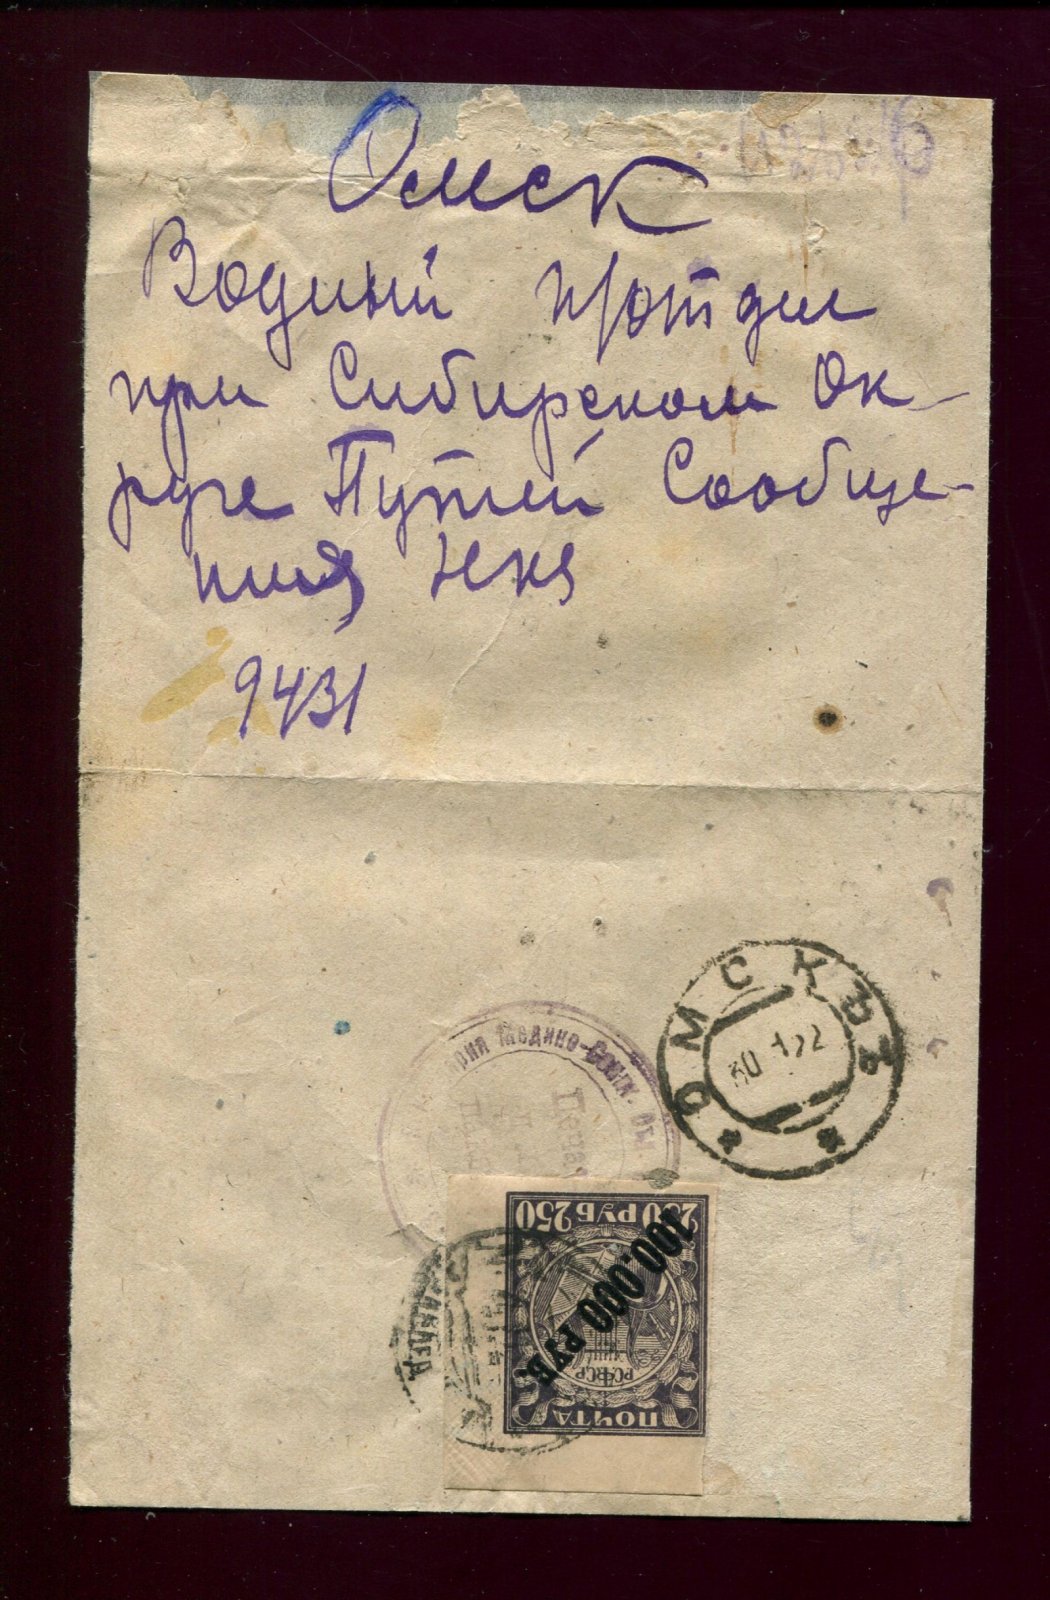 Омск
Водный п/отдел
при Сибирском Ок-
руге Путей Сообще-
ния НКЯ
9431
ОМСКЪ
30 1 22
Медико-Сани. Отд.
250 РУБ 250
100.000 РУБ.
РСФСР
ПОЧТА